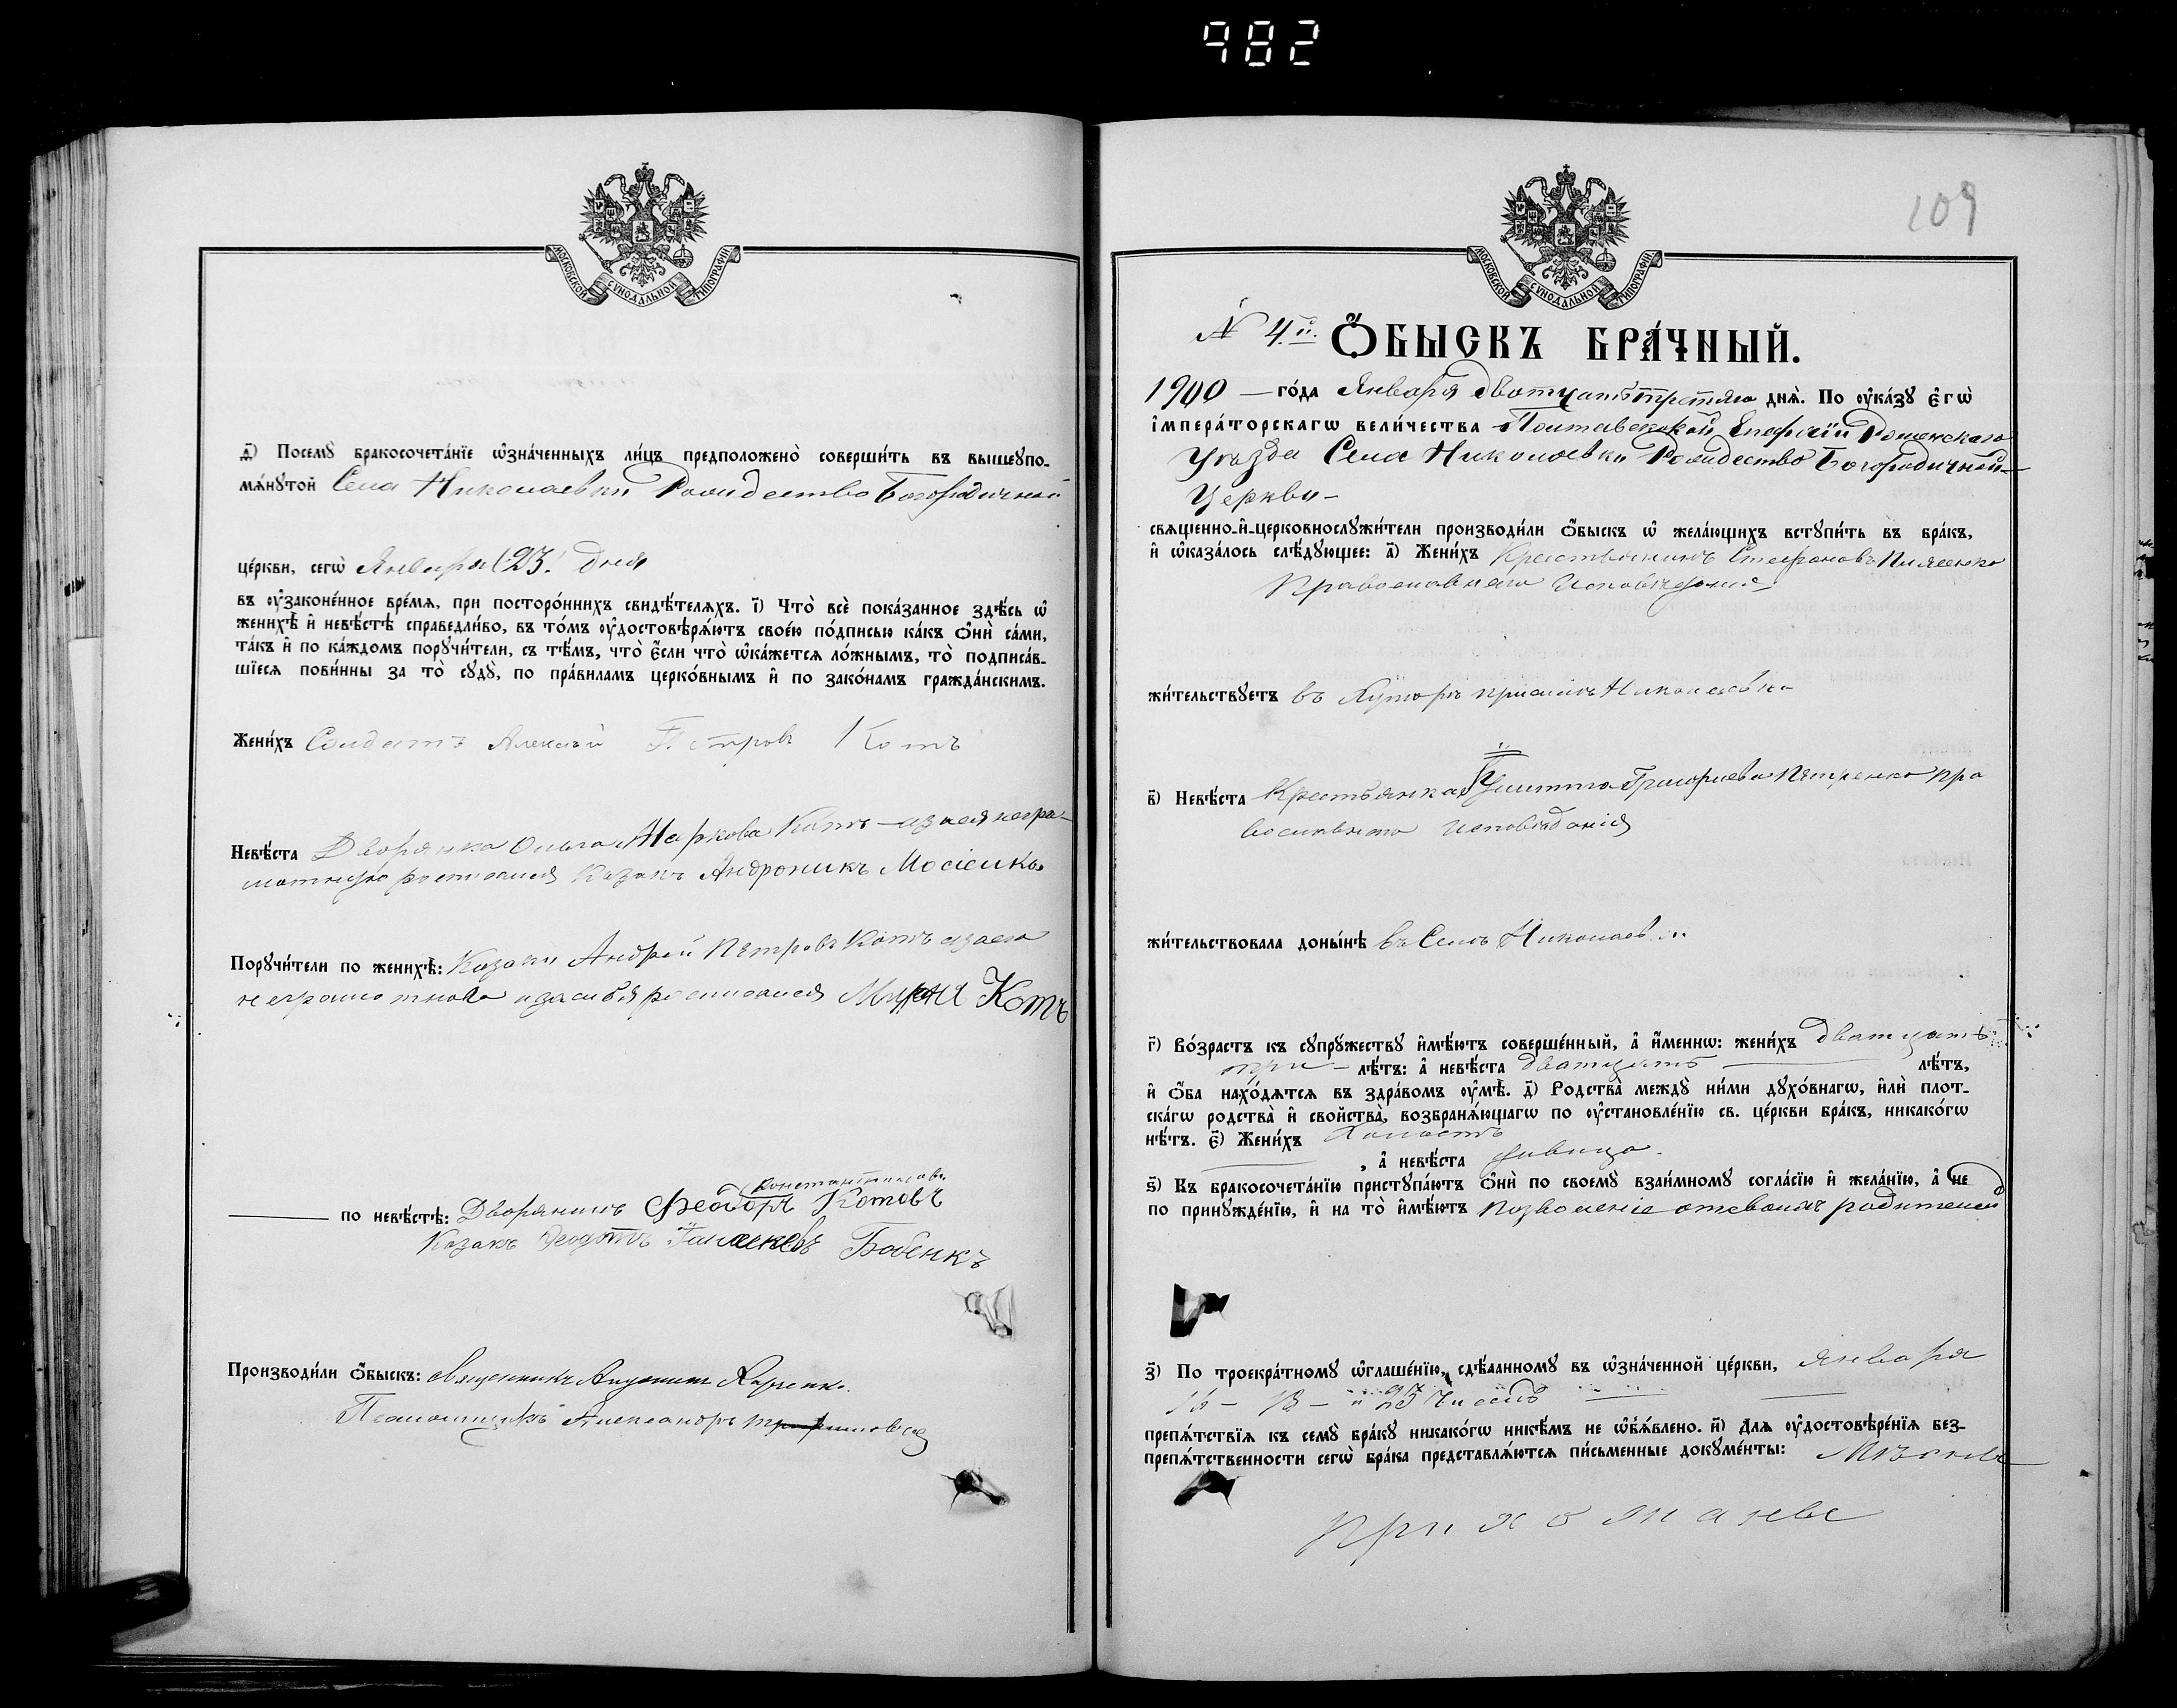 982
МОСКОВСКОЙ СУНОДАЛЬНОЙ ТИПОГРАФІИ
д҃) Посемꙋ̀ бракосочета́нїе ѡ҆зна́ченныхъ ли́цъ предположено̀ соверши́ть въ вышеꙋпо-
мѧ́нꙋтой Села Николаевки Рождество Богородичной
це́ркви, сегѡ̀ Января 23. дня
въ ᲂу҆зако́ненное вре́мѧ, при посторо́ннихъ свидѣ́телѧхъ. і҃) Что̀ всѐ пока́занное здѣ́сь ѡ҆
женихѣ̀ и҆ невѣ́стѣ справедли́во, въ то́мъ ᲂу҆достовѣрѧ́ютъ свое́ю по́дписью ка́къ ѻ҆нѝ са́ми,
та́къ и҆ по ка́ждомъ порꙋчи́тели, съ тѣ́мъ, что̀ є҆́сли что̀ ѡ҆ка́жетсѧ ло́жнымъ, то̀ подписа́в-
шїесѧ пови́нны за то̀ сꙋдꙋ̀, по пра́виламъ церко́внымъ и҆ по зако́намъ гражда́нскимъ.
Жени́хъ Солдатъ Алексѣй Петровъ Котъ
Невѣ́ста Дворянка Ольга Маркова Котъ – а за нея негра-
мотную росписался Козакъ Андроникъ Мосіенко
Порꙋчи́тели по женихѣ̀: Козаки Андрей Петровъ Котъ а за его
неграмотнаго и за себя росписался Миронъ Котъ
Константиновъ
по невѣ́стѣ: Дворянинъ Ѳеодоръ Котовъ
Козакъ Бабенкъ
Производи́ли ѻ҆́быскъ: Священникъ
Псаломщикъ Александръ
109
МОСКОВСКОЙ СУНОДАЛЬНОЙ ТИПОГРАФІИ
№ 4й. Ѻ҆́БЫСКЪ БРА́ЧНЫЙ.
1900 – го́да Января двотцать третяго днѧ̀. По ᲂу҆ка́зꙋ є҆гѡ̀
і҆мпера́торскагѡ вели́чества Полтавской Епархіи Роменскаго
Уѣзда Села Николаевки Рождество Богородичной
Церкви –
свѧще́нно-и҆-церковнослꙋжи́тели производи́ли ѻ҆́быскъ ѡ҆ жела́ющихъ встꙋпи́ть въ бра́къ,
и҆ ѡ҆каза́лось слѣ́дꙋющее: а҃) Жени́хъ Крестьянинъ Стефановъ
Православнаго исповѣданія
жи́тельствꙋетъ въ Хуторѣ при селѣ Николаевки
в҃) Невѣ́ста Крестьянка Григориева Петренко пра
вославнаго исповѣданія
жи́тельствовала доны́нѣ въ Селѣ Николаевки
г҃) Во́зрастъ къ сꙋпрꙋ́жествꙋ и҆мѣ́ютъ соверше́нный, а҆ и҆́меннѡ: жени́хъ двотцать
три – лѣ́тъ: а҆ невѣ́ста двотцать лѣ́тъ,
и҆ ѻ҆́ба нахо́дѧтсѧ въ здра́вомъ ᲂу҆мѣ̀. д҃) Родства̀ междꙋ̀ ни́ми дꙋхо́внагѡ, и҆лѝ плот-
ска́гѡ родства̀ и҆ свойства̀, возбранѧ́ющагѡ по ᲂу҆становле́нїю св. це́ркви бра́къ, никако́гѡ
нѣ́тъ. є҃) Жени́хъ Холостъ
, а҆ невѣ́ста дивица.
ѕ҃) Къ бракосочета́нїю пристꙋпа́ютъ ѻ҆нѝ по своемꙋ̀ взаи́мномꙋ согла́сїю и҆ жела́нїю, а҆ не
по принꙋжде́нїю, и҆ на то̀ и҆мѣ́ютъ позволеніе отсвоихъ родителей
з҃) По троекра́тномꙋ ѡ҆глаше́нїю, сдѣ́ланномꙋ въ ѡ҆зна́ченной це́ркви, Января
препѧ́тствїѧ къ семꙋ̀ бра́кꙋ никако́гѡ никѣ́мъ не ѡ҆б̾ѧ́влено. и҃) Длѧ ᲂу҆достовѣре́нїѧ без-
препѧ́тственности сегѡ̀ бра́ка представлѧ́ютсѧ пи́сьменные докꙋме́нты: Мѣсныє
прихожане